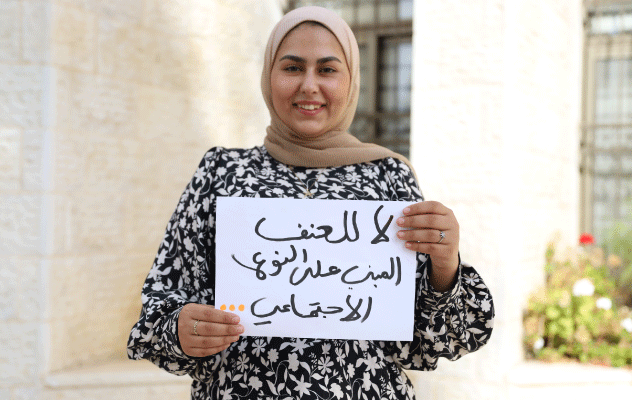 لا للعنف
المبني على النوع
الاجتماعي ...